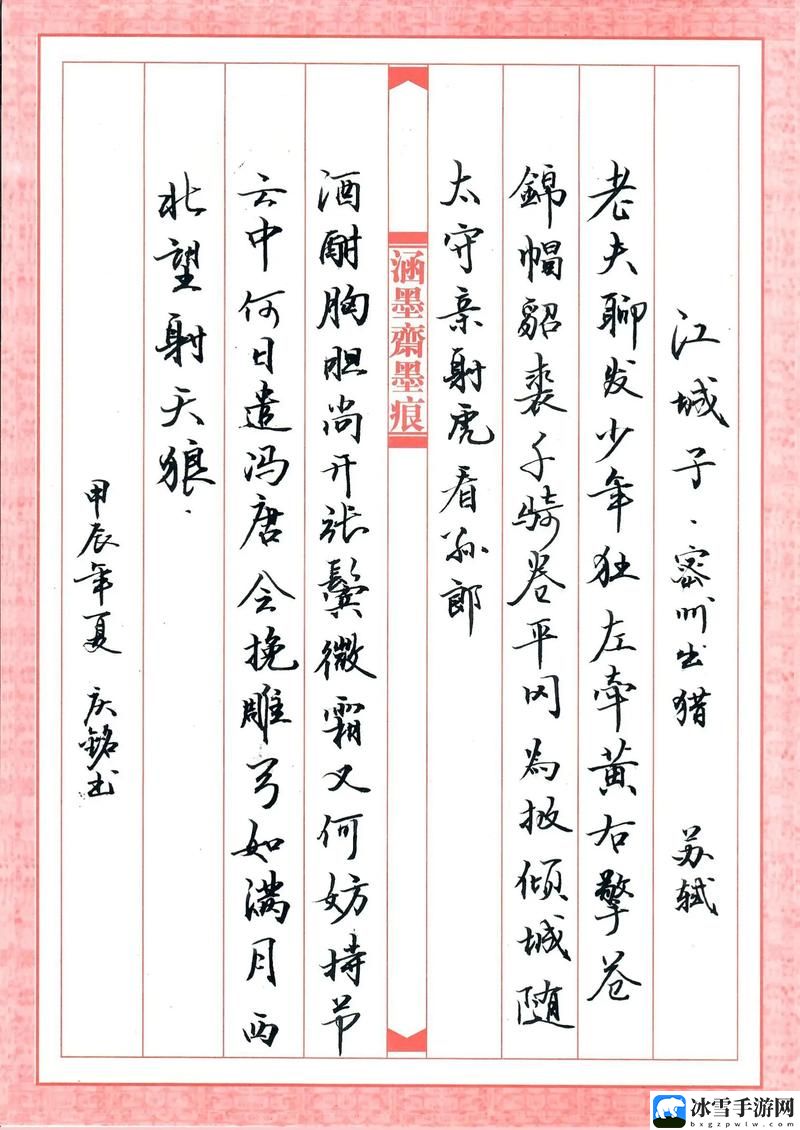 江城子·密州出猎 苏轼
老夫聊发少年狂左牵黄右擎苍
錦帽貂裘千骑卷平冈為报倾城随
太守亲射虎看孙郎
涵墨齋墨痕
酒酣胸胆尚开张鬓微霜又何妨持节
云中何日遣冯唐会挽雕弓如满月西
北望射天狼.
甲辰年夏 庆銘书
冰雪手游网
bxgzpwlw.com